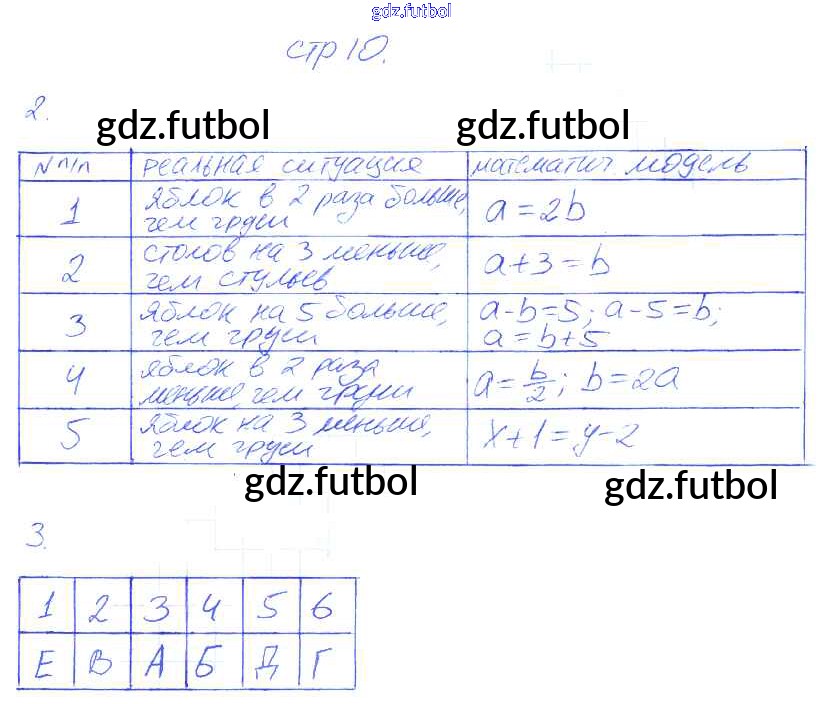 gdz.futbol
стр 10.
2.
gdz.futbol gdz.futbol
N п/п реальная ситуация математич. модель
1 яблок в 2 раза больше, чем груш a=2b
2 столов на 3 меньше, чем стульев a+3=b
3 яблок на 5 больше, чем груш a-b=5; a-5=b; a=b+5
4 яблок в 2 раза меньше, чем груш a=b/2; b=2a
5 яблок на 3 меньше, чем груш x+1=y-2
gdz.futbol gdz.futbol
3.
1 2 3 4 5 6
Е В А Б Д Г